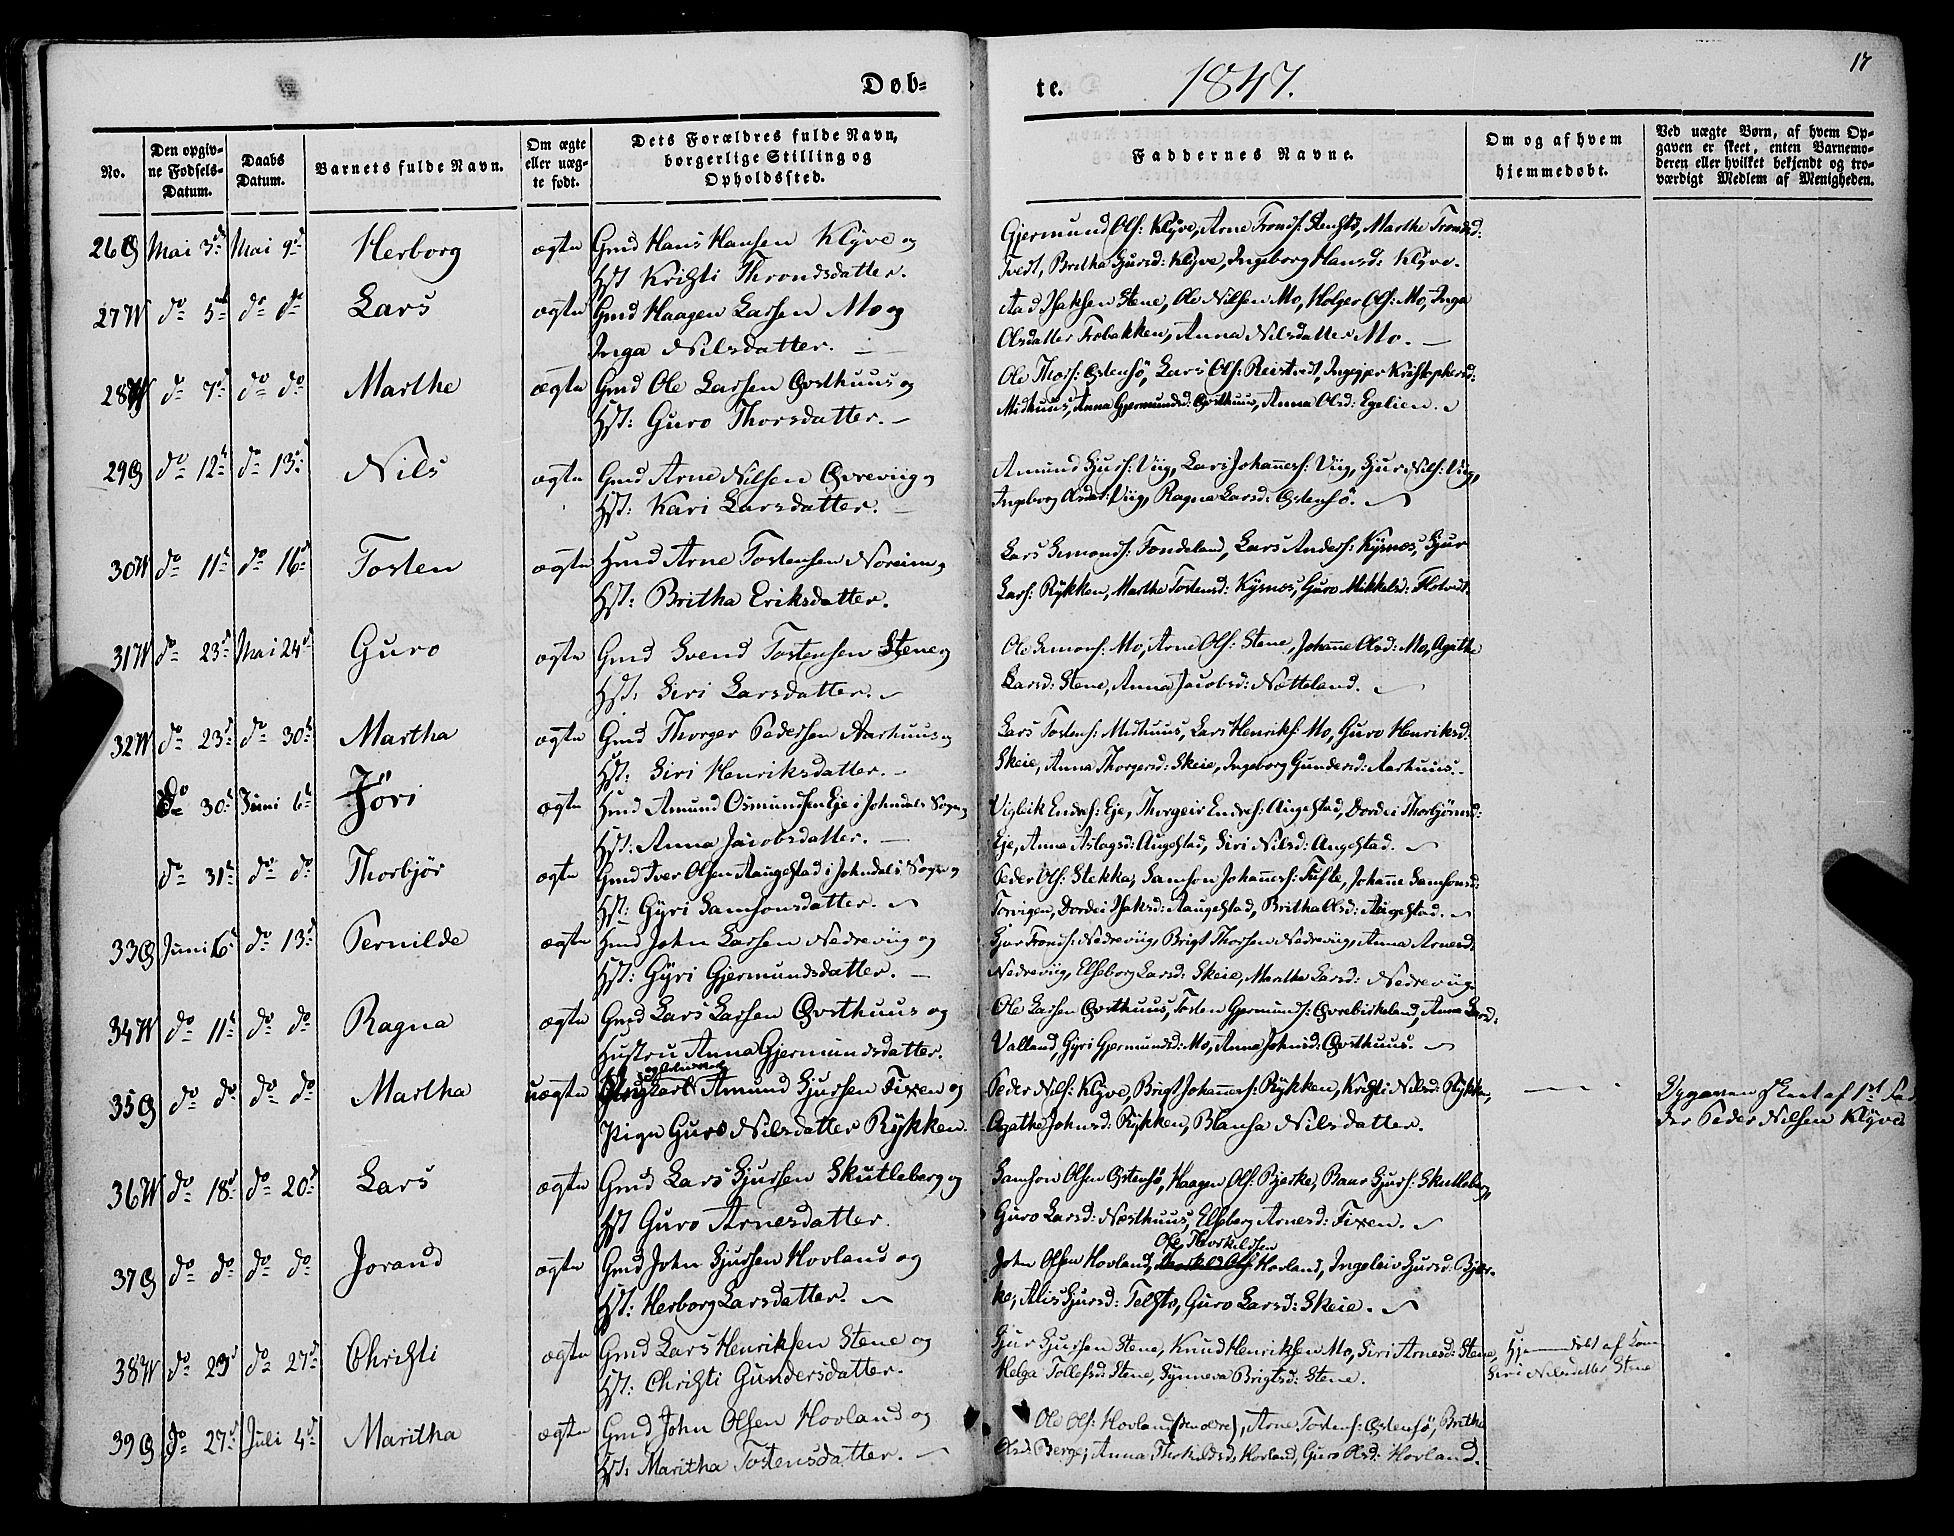 17
Døb-
te.
1847.
No.
Den opgiv-
ne Fødsels-
Datum.
Daabs
Datum.
Barnets fulde Navn.
Om ægte
eller uæg-
te født.
Dets Forældres fulde Navn,
borgerlige Stilling og
Opholdssted.
Faddernes Navne.
Om og af hvem
hjemmedøbt.
Ved uægte Børn, af hvem Op-
gaven er skeet, enten Barnemo-
deren eller hvilket bekjendt og tro-
værdigt Medlem af Menigheden.
26 Mai 3d Mai 9d Herborg ægte Gmd Hans Hansen Klyve og
Hst Kristi Throndsdatter.
Gjermund Ols: Klyve, Arne Tronds: Marthe Tronsd:
Tvedt, Britha Sjursd: Klyve, Ingeborg Hansd: Klyve.
27W do 5d do do Lars ægte Gmd Haagen Larsen Mo og
Inga Nilsdatter.
Isaksen Stene, Ole Nilsen Mo, Holger Ols: Mo, Inga
Olsdatter Trobakken, Anna Nilsdatter Mo.
28W do 7d do do Marthe ægte Gmd Ole Larsen Østhuus og
Hst: Guro Thorsdatter.
Ole Thors: Østensø, Lars Ols: Reistvedt, Ingegjer Kristophersd:
Midhuus, Anna Gjermundsd: Østhuus, Anna Olsd: Egelien.
29 do 12t do 13d Nils ægte Gmd Arne Nilsen Øvreviig og
Hst: Kari Larsdatter.
Amund Sjurs: Viig, Lars Johannes: Viig, Sjur Nils: Viig,
Ingeborg Olsdat: Viig, Ragna Larsd: Østensø.
30W do 11t do 16d Tosten ægte Hmd Arne Tostensen Noreim og
Hst: Britha Eriksdatter.
Lars Simons: Tondeland, Lars Anders: Kysnæs, Sjur
Lars: Rykken, Marthe Tostensd: Kysnæs, Guro Mikkelsd: Flotvedt.
31W do 23d Mai 24d Guro ægte Gmd Svend Tostensen Stene og
Hst: Siri Larsdatter.
Ole Simons: Mo, Arne Ols: Stene, Johanne Olsd: Mo, Agathe
Larsd: Stene, Anna Jacobsd: Netteland.
32W do 23d do 30t Martha ægte Gmd Thorger Pedersen Aarhuus og
Hst: Siri Henriksdatter.
Lars Tostens: Midhuus, Lars Henriks: Mo, Guro Henriksd:
Skeie, Anna Thorgersd: Skeie, Ingeborg Gundersd: Aarhuus.
do 30t Juni 6t Jóri ægte Hmd Amund Osmundsen Eje i Johndals Sogn og
Hst: Anna Jacobsdatter.
Vigleik Endres: Eje, Thorgeir Endres: Augestad, Dordei Thorbjørnsd:
Eje, Anna Aslagsd: Augestad, Siri Nilsd: Augestad.
do 31t do do Thorbjør ægte Gmd Iver Olsen Aaugestad i Johndals Sogn og
Hst: Gyri Samsonsdatter.
Peder Ols: Stekka, Samson Johannes: Fliste, Johanne Samsonsd:
Torvigen, Dordei Isaksd: Aaugestad, Britha Olsd: Augestad.
33 Juni 6t do 13d Pernilde ægte Hmd John Larsen Nedreviig og
Hst: Gyri Gjermundsdatter.
Sjur Tronds: Nedreviig, Brigt Thorsen Nedreviig, Anna Arnesd:
Nedreviig, Elseborg Larsd: Skeie, Martha Larsd: Nedreviig
34W do 11t do do Ragna ægte Gmd Lars Larsen Østhuus og
Hustru Anna Gjermundsdatter.
Ole Larsen Østhuus, Tosten Gjermunds: Øvrebirkeland, Anna Larsd:
Valland, Gyri Gjermundsd: Mo, Anna Johnsd: Østhuus.
35 do do do do Martha uægte Ungkarl Amund Sjursen Fixen og
Pige Guro Nilsdatter Rykken.
Peder Nils: Klyve, Brigt Johannes: Rykken, Kristi Nilsd: Rykken,
Agathe Johnsd: Rykken, Blansa Nilsdatter.
Opgaven skeet af 1st Fad
der Peder Nilsen Klyve
36W do 18d do 20d Lars ægte Gmd Lars Sjursen Skutleberg og
Hst Guro Arnesdatter.
Samson Olsen Østensø, Haagen Ols: Bjerke, Baar Sjurs: Skutleberg,
Guro Larsd: Næsthuus, Elseborg Arnesd: Fixen.
37 do do do do Jorand ægte Gmd John Sjursen Hovland og
Hst: Herborg Larsdatter.
Ole Thorkildsen
John Olsen Hovland, Hovland, Ingeleiv Sjursd: Bjer-
ke, Alis Sjursd: Telstø, Guro Larsd: Skeie.
38W do 23d do 27d Christi ægte Gmd Lars Henriksen Stene og
Hst: Christi Gundersdatter.
Sjur Sjursen Stene, Knud Henriksen Mo, Siri Arnesd: Stene,
Helga Tollefsd: Stene, Synneva Brigtsd: Stene.
Hjemmedøbt af Kone
Siri Nilsdatter Stene
39 do 27d Juli 4d Maritha ægte Gmd John Olsen Hovland og
Hst: Maritha Tostensdatter.
Ole Ols: Hovland, Arne Tostens: Østensø, Britha
Olsd: Berge, Anna Thorkildsd: Hovland, Guro Olsd: Hovland.